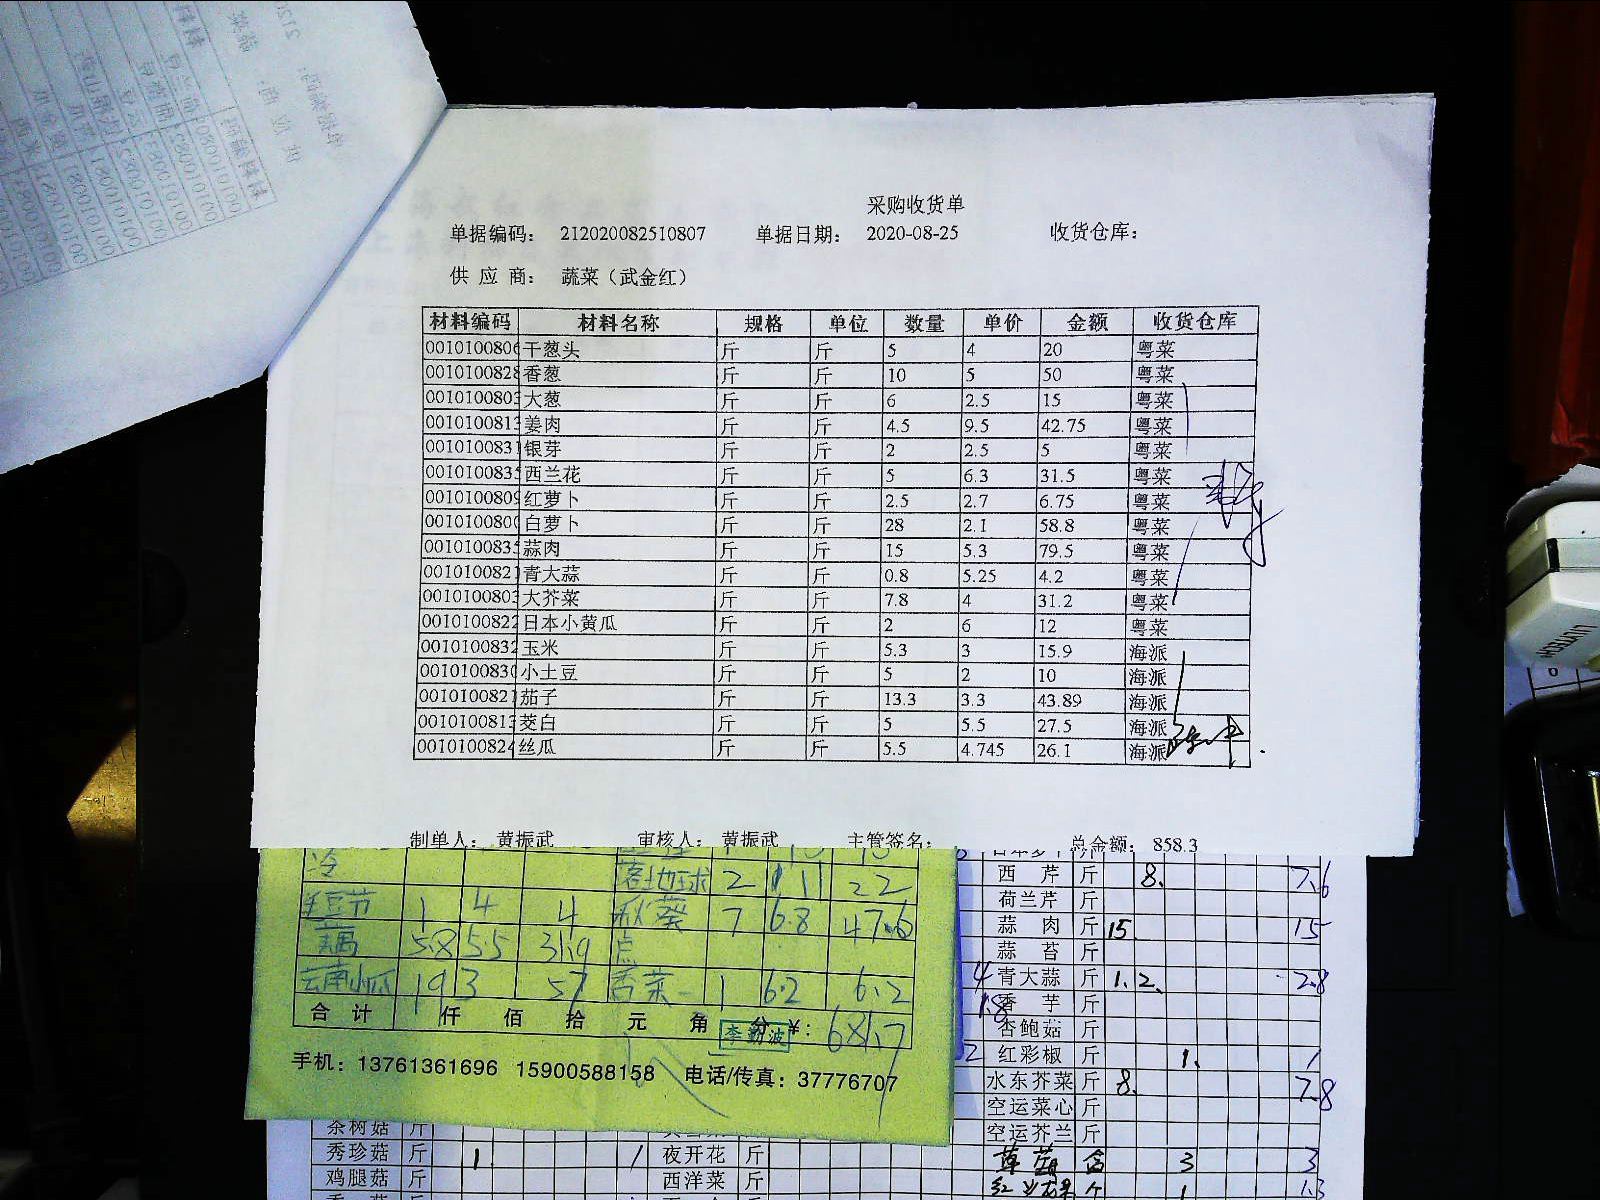 采购收货单
单据编码： 212020082510807 单据日期： 2020-08-25 收货仓库：
供 应 商： 蔬菜（武金红）
材料编码 材料名称 规格 单位 数量 单价 金额 收货仓库
0010100806 干葱头 斤 斤 5 4 20 粤菜
0010100828 香葱 斤 斤 10 5 50 粤菜
001010080 大葱 斤 斤 6 2.5 15 粤菜
001010081 姜肉 斤 斤 4.5 9.5 42.75 粤菜
001010083 银芽 斤 斤 2 2.5 5 粤菜
001010083 西兰花 斤 斤 5 6.3 31.5 粤菜
0010100809 红萝卜 斤 斤 2.5 2.7 6.75 粤菜
001010080 白萝卜 斤 斤 28 2.1 58.8 粤菜
001010083 蒜肉 斤 斤 15 5.3 79.5 粤菜
001010082 青大蒜 斤 斤 0.8 5.25 4.2 粤菜
001010080 大芥菜 斤 斤 7.8 4 31.2 粤菜
0010100822 日本小黄瓜 斤 斤 2 6 12 粤菜
0010100832 玉米 斤 斤 5.3 3 15.9 海派
001010083 小土豆 斤 斤 5 2 10 海派
001010082 茄子 斤 斤 13.3 3.3 43.89 海派
001010081 茭白 斤 斤 5 5.5 27.5 海派
0010100824 丝瓜 斤 斤 5.5 4.745 26.1 海派
制单人： 黄振武 审核人： 黄振武 主管签名： 总金额： 858.3
冷
落地球 2 11 22
毛豆节 1 4 4 秋葵 7 6.8 47.6
藕 5.8 5.5 31.9 点
云南小瓜 19 3 57 香菜 1 6.2 6.2
合 计 仟 佰 拾 元 角 分 ¥： 681.7
李勤波
手机：13761361696 15900588158 电话/传真：37776707
西 芹 斤 8. 7.6
荷兰芹 斤
蒜 肉 斤 15. 15
蒜 苔 斤
青大蒜 斤 1.2. 2.8
香 芋 斤
杏鲍菇 斤
红彩椒 斤 1. 1
水东芥菜 斤 8. 7.8
空运菜心 斤
空运芥兰 斤
草菇 盒 3 3
红火龙果 个 1 1.3
茶树菇 斤
秀珍菇 斤 1. 1 夜开花 斤
鸡腿菇 斤 西洋菜 斤